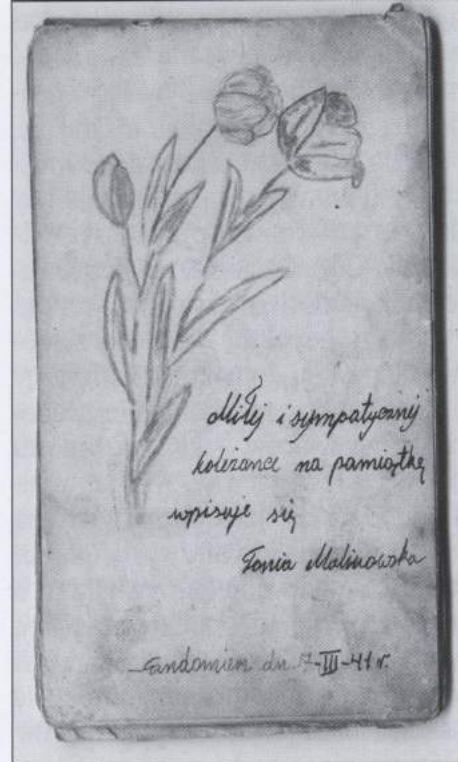 Miłej i sympatycznej
koleżance na pamiątkę
wpisuje się
Malinowska
Sandomierz dn. 7-III-41 r.